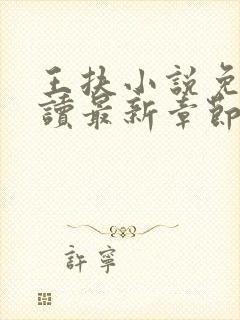 王扶小說免
讀最新章節
許寧